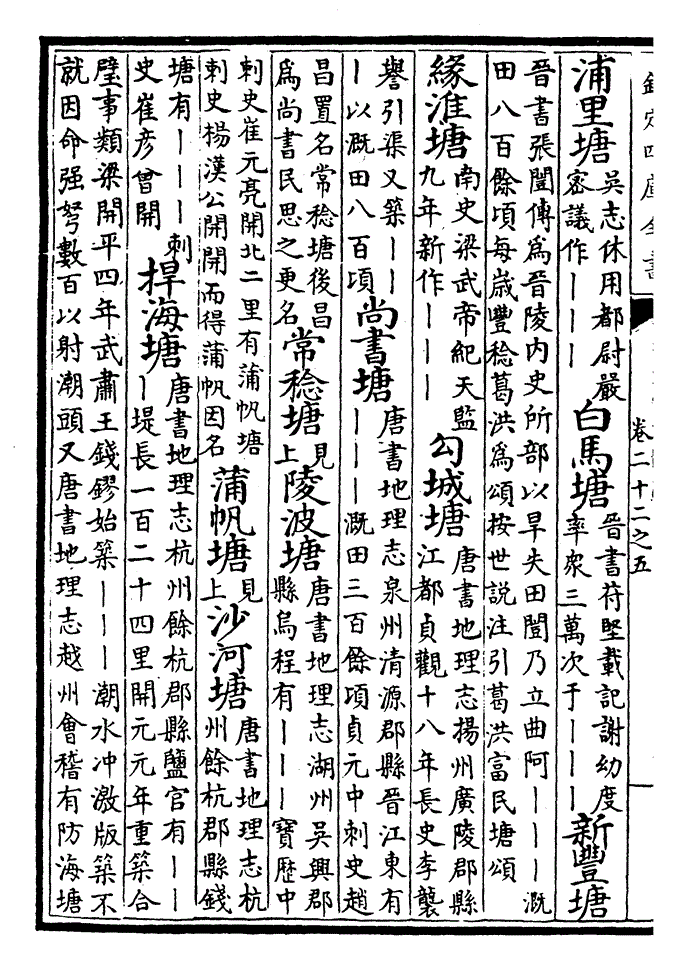 欽定四庫全書
卷二十二之五
浦里塘吳志休用都尉嚴密議作｜｜｜白馬塘晉書苻堅載記謝幼度率衆三萬次于｜｜｜新豐塘
晉書張闓傳為晉陵內史所部以旱失田闓乃立曲阿｜｜｜溉田八百餘頃每歲豐稔葛洪為頌按世說注引葛洪富民塘頌
緣淮塘南史梁武帝紀天監九年新作｜｜｜勾城塘唐書地理志揚州廣陵郡縣江都貞觀十八年長史李襲
譽引渠又築｜｜｜以溉田八百頃尚書塘唐書地理志泉州清源郡縣晉江東有｜｜｜溉田三百餘頃貞元中刺史趙
昌置名常稔塘後昌為尚書民思之更名常稔塘見上陵波塘唐書地理志湖州吳興郡縣烏程有｜｜｜寶歷中
刺史崔元亮開北二里有蒲帆塘刺史楊漢公開開而得蒲帆因名蒲帆塘見上沙河塘唐書地理志杭州餘杭郡縣錢
塘有｜｜｜刺史崔彥曾開捍海塘唐書地理志杭州餘杭郡縣鹽官有｜｜｜堤長一百二十四里開元元年重築合
璧事類梁開平四年武肅王錢鏐始築｜｜｜潮水冲激版築不就因命强弩數百以射潮頭又唐書地理志越州會稽有防海塘